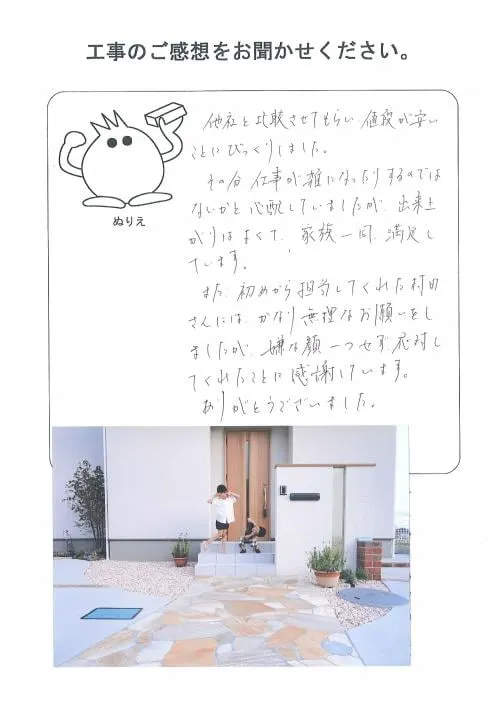 工事のご感想をお聞かせください。
ぬりえ
他社と比較させてもらい値段が安い
ことにびっくりしました。
その分仕事が雑になったりするのでは
ないかと心配していましたが、出来上
がりはよくて、家族一同、満足し
ています。
また、初めから担当してくれた村田
さんには、かなり無理なお願いをし
ましたが、嫌な顔一つせず応対し
てくれたことに感謝しています。
ありがとうございました。